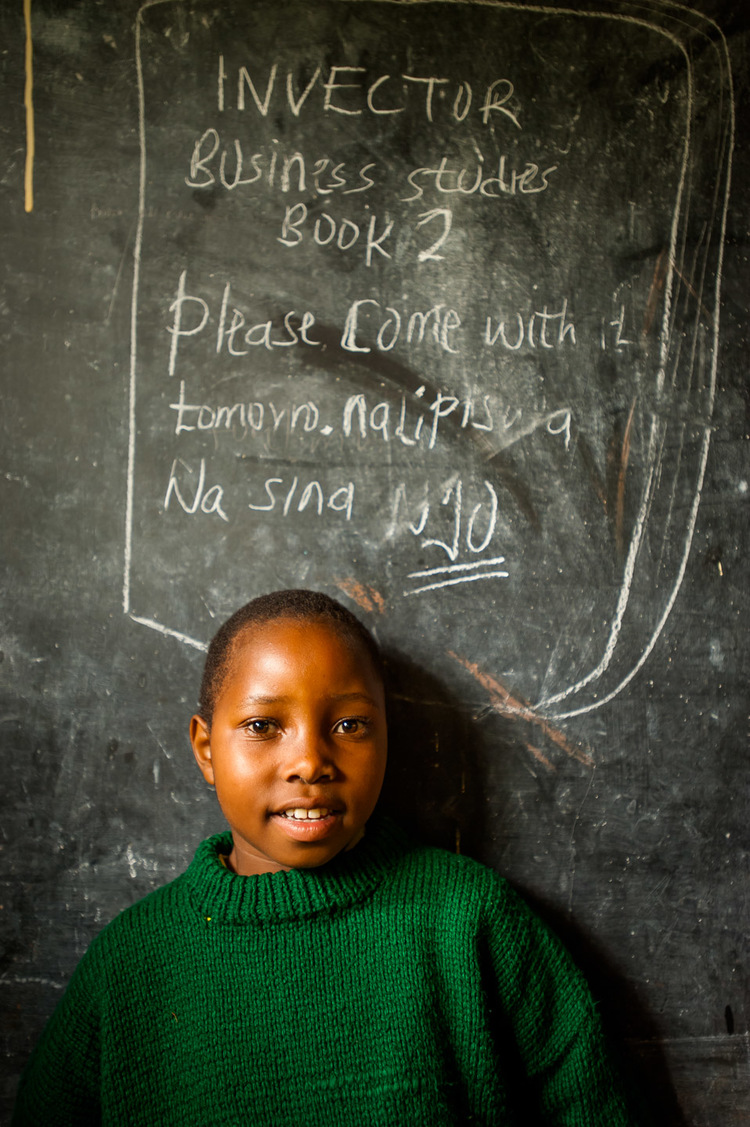 INVECTOR
Business studies
BOOK 2
please Come with it
tomorro. nalipiswa
Na sina